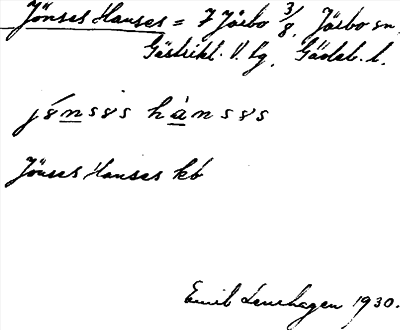 Jönses Hanses = 7 Järbo 3/8, Järbo sn,
Gästrikl. V. tg, Gävleb. l.
jȯ́nsəs hȧ́nsəs
Jönses Hanses kb
Emil Lenhagen 1930.